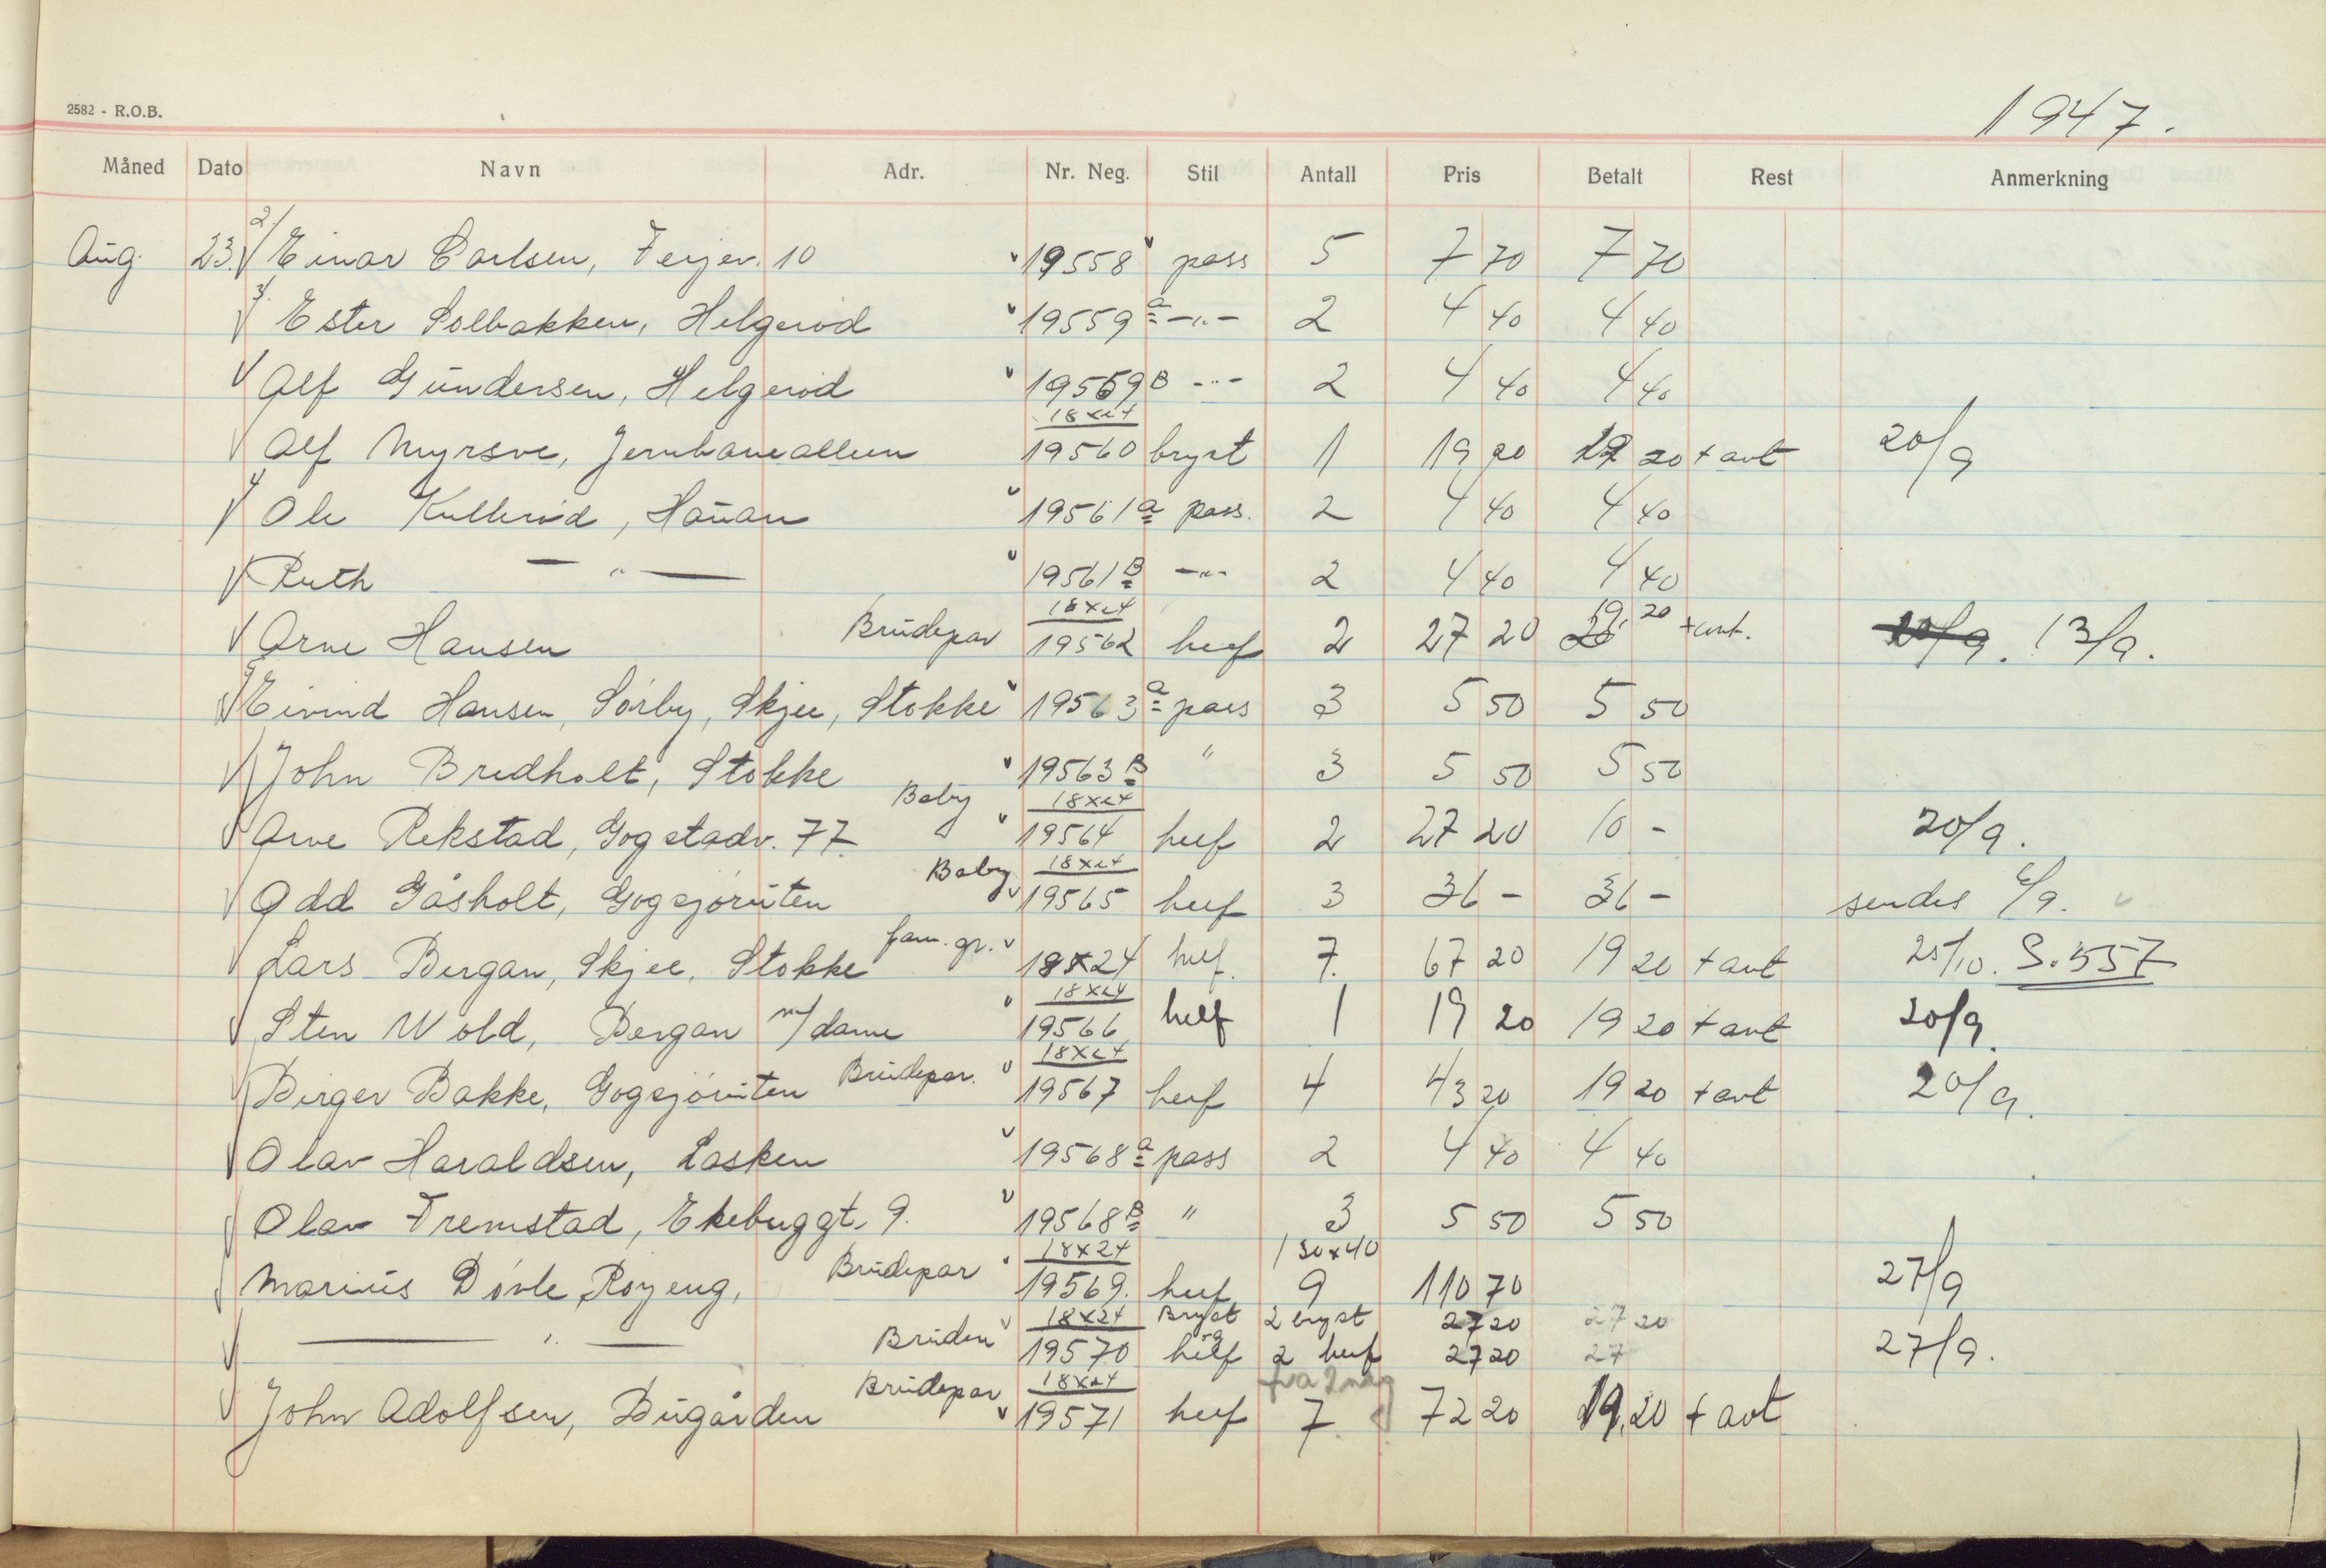 2582 - R.O.B.
1947.
Måned Dato Navn Adr. Nr. Neg. Stil Antall Pris Betalt Rest Anmerkning
Aug. 23. 2/ Einar Carlsen, Ferjev. 10 19558 pass 5 7 70 7 70
Ester Solbakken, Helgerød 19559 a -"- 2 4 40 4 40
Alf Gundersen, Helgerød 19559 B -"- 2 4 40 4 40
18x24
Alf Myrsve, Jernbanealleen 19560 bryst 1 19 20 19 20 + avt 20/9
Ole Kullerød, Hauan 19561 a pass. 2 4 40 4 40
Ruth — " — 19561 B -"- 2 4 40 4 40
18x24
Arne Hansen Brudepar 19562 helf 2 27 20 19, 20 + avt. 20/9. 13/9.
Eivind Hansen, Sørby, Skjee, Stokke 19563 a pass 3 5 50 5 50
John Bredholt, Stokke 19563 B " 3 5 50 5 50
Baby 18x24
Arve Rekstad, Gogstadv. 77. 19564 helf 2 27 20 10 - 20/9.
Baby 18x24
Odd Gåsholt, Gogsjøruten 19565 helf 3 36 - 36 - sendes /9.
Lars Bergan, Skjee, Stokke fam. gr. 18x24 helf. 7. 67 20 19 20 + avt 25/10. S. 557
18x24
Sten Wold, Bergan m/dame 19566 helf 1 19 20 19 20 + avt 20/9.
18x24
Birger Bakke, Gogsjøruten Brudepar. 19567 helf 4 43 20 19 20 + avt 20/9.
Olav Haraldsen, Lasken 19568 a pass 2 4 40 4 40
Olav Fremstad, Ekebuggt. 9. 19568 B " 3 5 50 5 50
18x24 1 30x40
Marius Døvle, Røyeng, Brudepar 19569. helf 9 110 70 27/9
18x24 Bryst 2 bryst 27 20 27 20
— " — Bruden 19570 og helf 2 helf 27 20 27 27/9.
18x24 fra 2 neg
John Adolfsen, Bugården Brudepar 19571 helf 7. 72 20 19,20 + avt